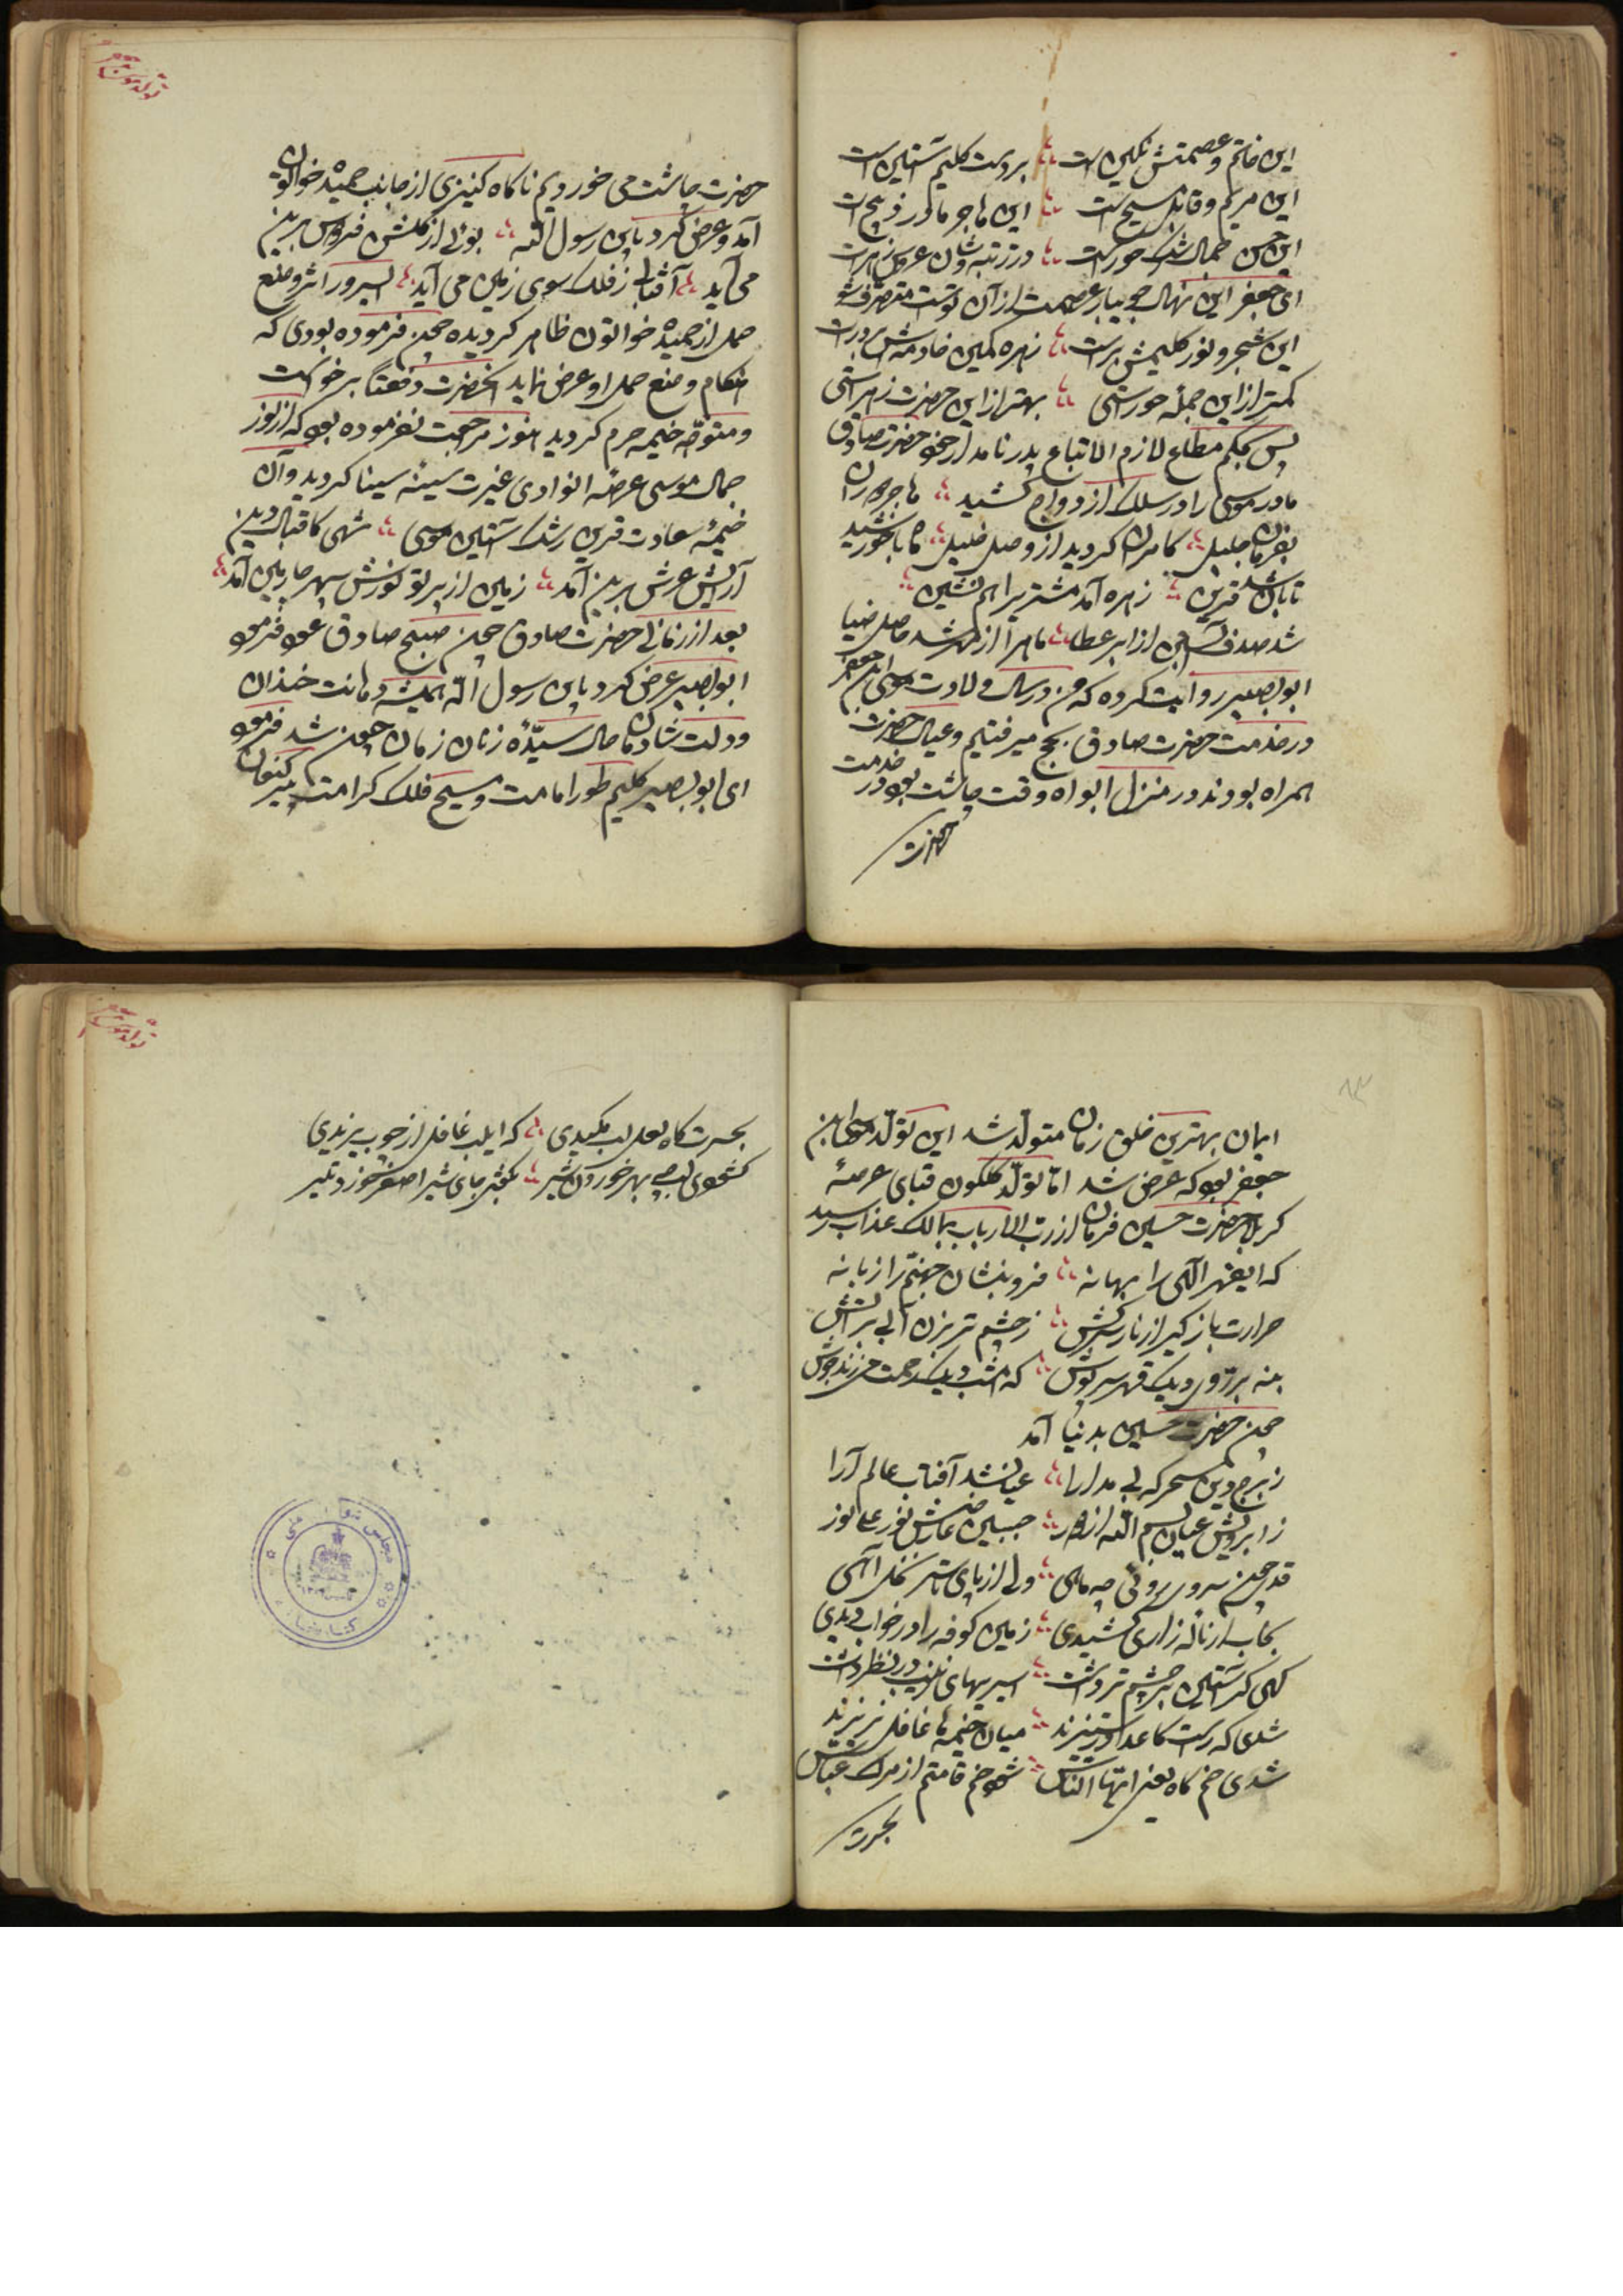 این خاتم و عصمتش نگین است بر دست کلیم آستین است
این مریم و قابل مسیح است این هاجر مادر ذبیح است
این حسن جمال رشک حور است در رتبه و شان عروس زهراست
ای جعفر این نهال جویبار عصمت از آن تست متصرف شو
این شجر و نور کلیمش برست زهره کمین خادمه‌اش بر درست
کمتر از این جمله حوراستی بهتر از این حضرت زهراستی
پس بحکم مطاع لازم الاتباع پدر نامدار خود حضرت صادق
مادر موسی را در سلک ازدواج کشید هاجر دوران
بفرمان جلیل کامران گردید از وصل خلیل ماه با خورشید
تابان شد قرین زهره آمد مشتری را هم نشین
شد صدف آبستن از ابر عطا ماه را از مهر شد حاصل ضیا
ابوبصیر روایت کرده که من در سال ولادت موسی ابن جعفر
در خدمت حضرت صادق بحج میرفتیم و عیال حضرت
همراه بودند در منزل ابواه وقت چاشت بود در خدمت
حضرت
تولد موسی
حضرت چاشت می خوردیم ناگاه کنیزی از جانب حمیده خواتون
آمد و عرض کرد یابن رسول الله بوئی از گلشن فردوس برین
می آید آفتابی ز فلک سوی زمین می آید ای سرور اثر وضع
حمل از حمیده خواتون ظاهر گردیده چون فرموده بودی که
هنگام وضع حمل او عرض نماید آنحضرت دفعتاً برخواست
و متوجه خیمه حرم گردید هنوز مراجعت نفرموده بود که از نور
جمال موسی عرصه انوادی غیرت سینه سینا گردید و آن
خیمه سعادت قرین رشک آستین موسی شهی کاقبال دین
آرایش عرش برین آمد زمین از پرتو نورش سپهر چارمین آمد
بعد از زمانی حضرت صادق چون صبح صادق عود فرمود
ابوبصیر عرض کرد یابن رسول الله همیشه دهانت خندان
و دلت شادمان حال سیّدهٔ زنان زمان چون شد فرمود
ای ابوبصیر کلیم طور امامت و مسیح فلک کرامت پیر کنعان
ایمان بهترین خلق زمان متولد شد این تولد موسی ابن
جعفر بود که عرض شد اما تولد گلگون قبای عرصه
کربلا حضرت حسین فرمان از رب الارباب بمالک عذاب رسید
که ایقهر الهی را بهانه فرو بنشان جهنم را زبانه
حرارت باز گیر از نار سرکش ز چشم تر بزن آبی بر آتش
بنه بر روی دیگ قهر سرپوش که امشب دیگ رحمت میزند جوش
چون حضرت حسین بدنیا آمد
ز برج دین سحرگه بی مدارا عیان شد آفتاب عالم آرا
ز ابرویش عیان بسم الله از دور جبین عارضش نور علی نور
قد چون سرو بروئی چه ماهی ولی از پای تا سر نخل آهی
بخاب ار ناله زاری کشیدی زمین کوفه را در خواب دیدی
گهی گر آستین بر چشم تر داشت اسیریهای زینب در نظر داشت
شدی که راست کاعدا در ستیزند میان خیمه‌ها غافل نریزند
شدی خم گاه یعنی ایّها الناس شود خم قامتم از مرگ عباس
بحسرت
تولد موسی
بحسرت گاه لعل لب مکیدی که ایلب غافل از چوب یزیدی
گشودی لب چو بهر خوردن شیر بگفتی جای شیر اصغر خورد تیر
مجلس شورای ملی
کتابخانه